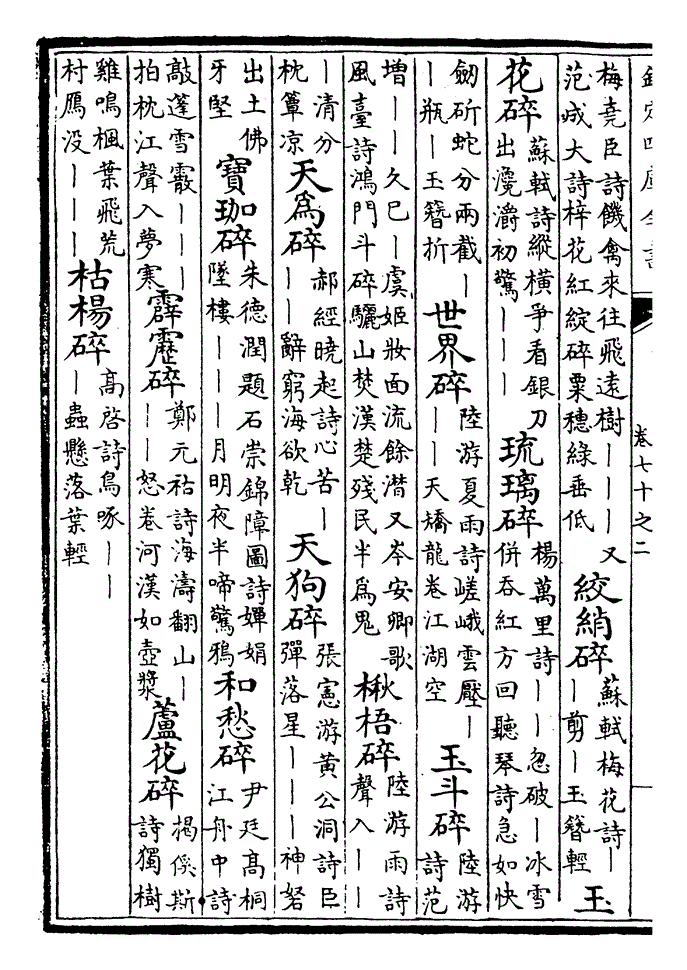 欽定四庫全書 卷七十之二
梅堯臣詩饑禽來往飛遠樹｜｜｜又
范成大詩梓花紅綻碎粟穗綠垂低
絞綃碎
蘇軾梅花詩｜
｜剪｜玉簪輕
玉
花碎
蘇軾詩縱橫爭看銀刀
出瀺灂初驚｜｜｜
琉璃碎
楊萬里詩｜｜忽破｜冰雪
併吞紅方回聽琴詩急如快
劒斫蛇分兩截｜
｜瓶｜玉簪折
世界碎
陸游夏雨詩嵯峨雲壓｜
｜｜天矯龍卷江湖空
玉斗碎
陸游
詩范
增｜｜｜久已｜虞姬妝面流餘潸又岑安卿歌
風臺詩鴻門斗碎驪山焚漢楚殘民半爲鬼
楸梧碎
陸游雨詩
聲入｜｜
｜清分
枕簟凉
天爲碎
郝經曉起詩心苦｜
｜｜辭窮海欲乾
天狗碎
張憲游黄公洞詩巨
彈落星｜｜｜神弩
出土佛
牙堅
寶珈碎
朱德潤題石崇錦障圖詩嬋娟
墜樓｜｜｜月明夜半啼驚鴉
和愁碎
尹廷高桐
江舟中詩
敲蓬雪霰｜｜｜
拍枕江聲入夢寒
霹靂碎
鄭元祐詩海濤翻山｜
｜｜怒卷河漢如壺漿
蘆花碎
揭傒斯
詩獨樹
雞鳴楓葉飛荒
村鴈没｜｜｜
枯楊碎
高啓詩鳥啄｜｜
｜蟲懸落葉輕